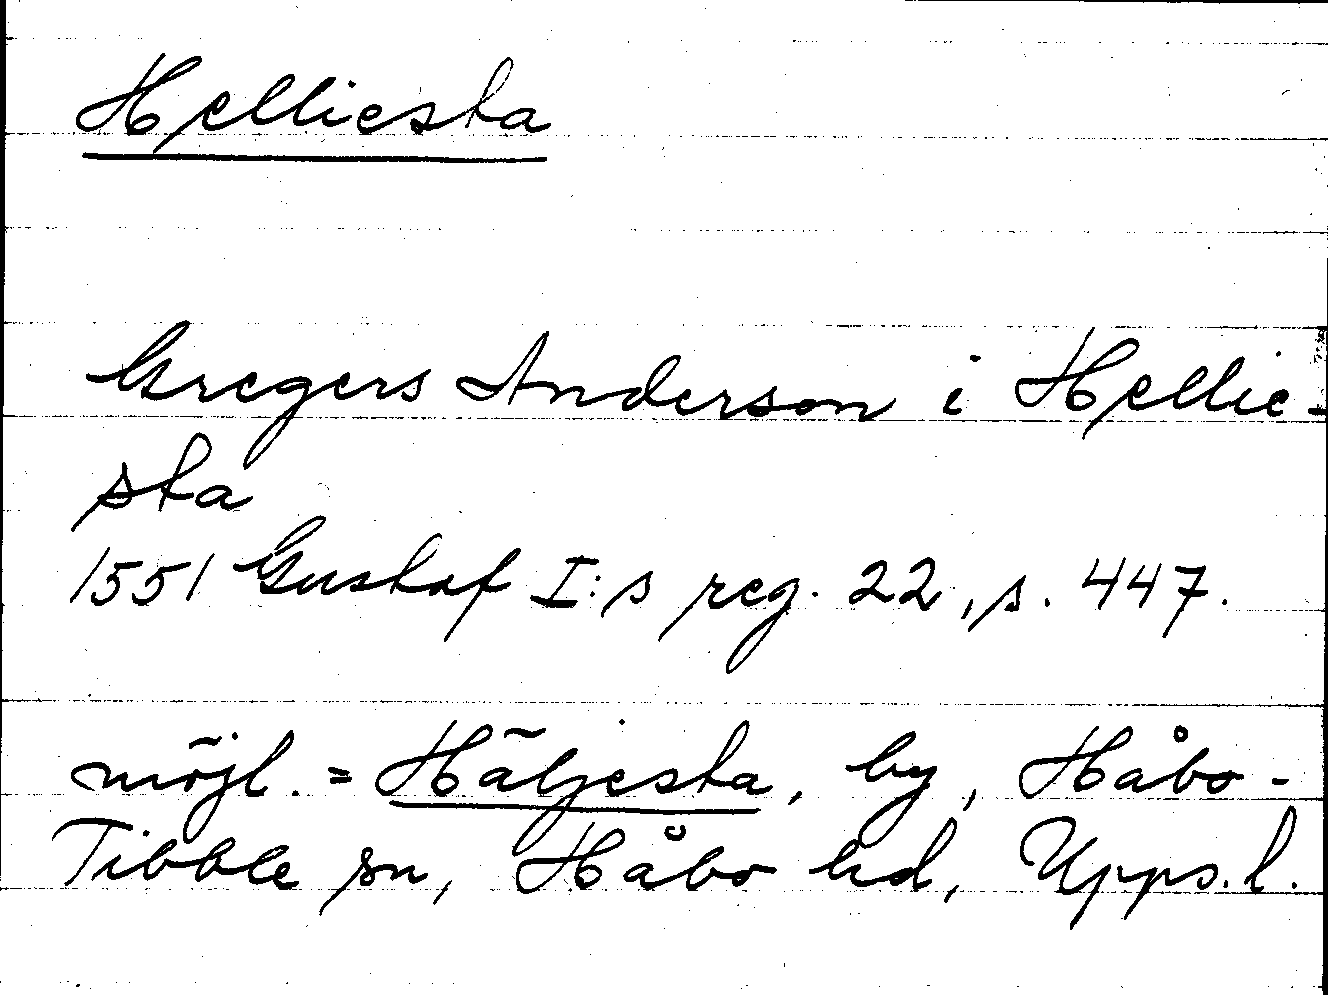 Helliesta
Gregers Anderson i Hellie-
sta
1551 Gustaf I:s reg. 22, s. 447.
möjl. = Häljesta, by, Håbo-
Tibble sn, Håbo hd, Upps. l.